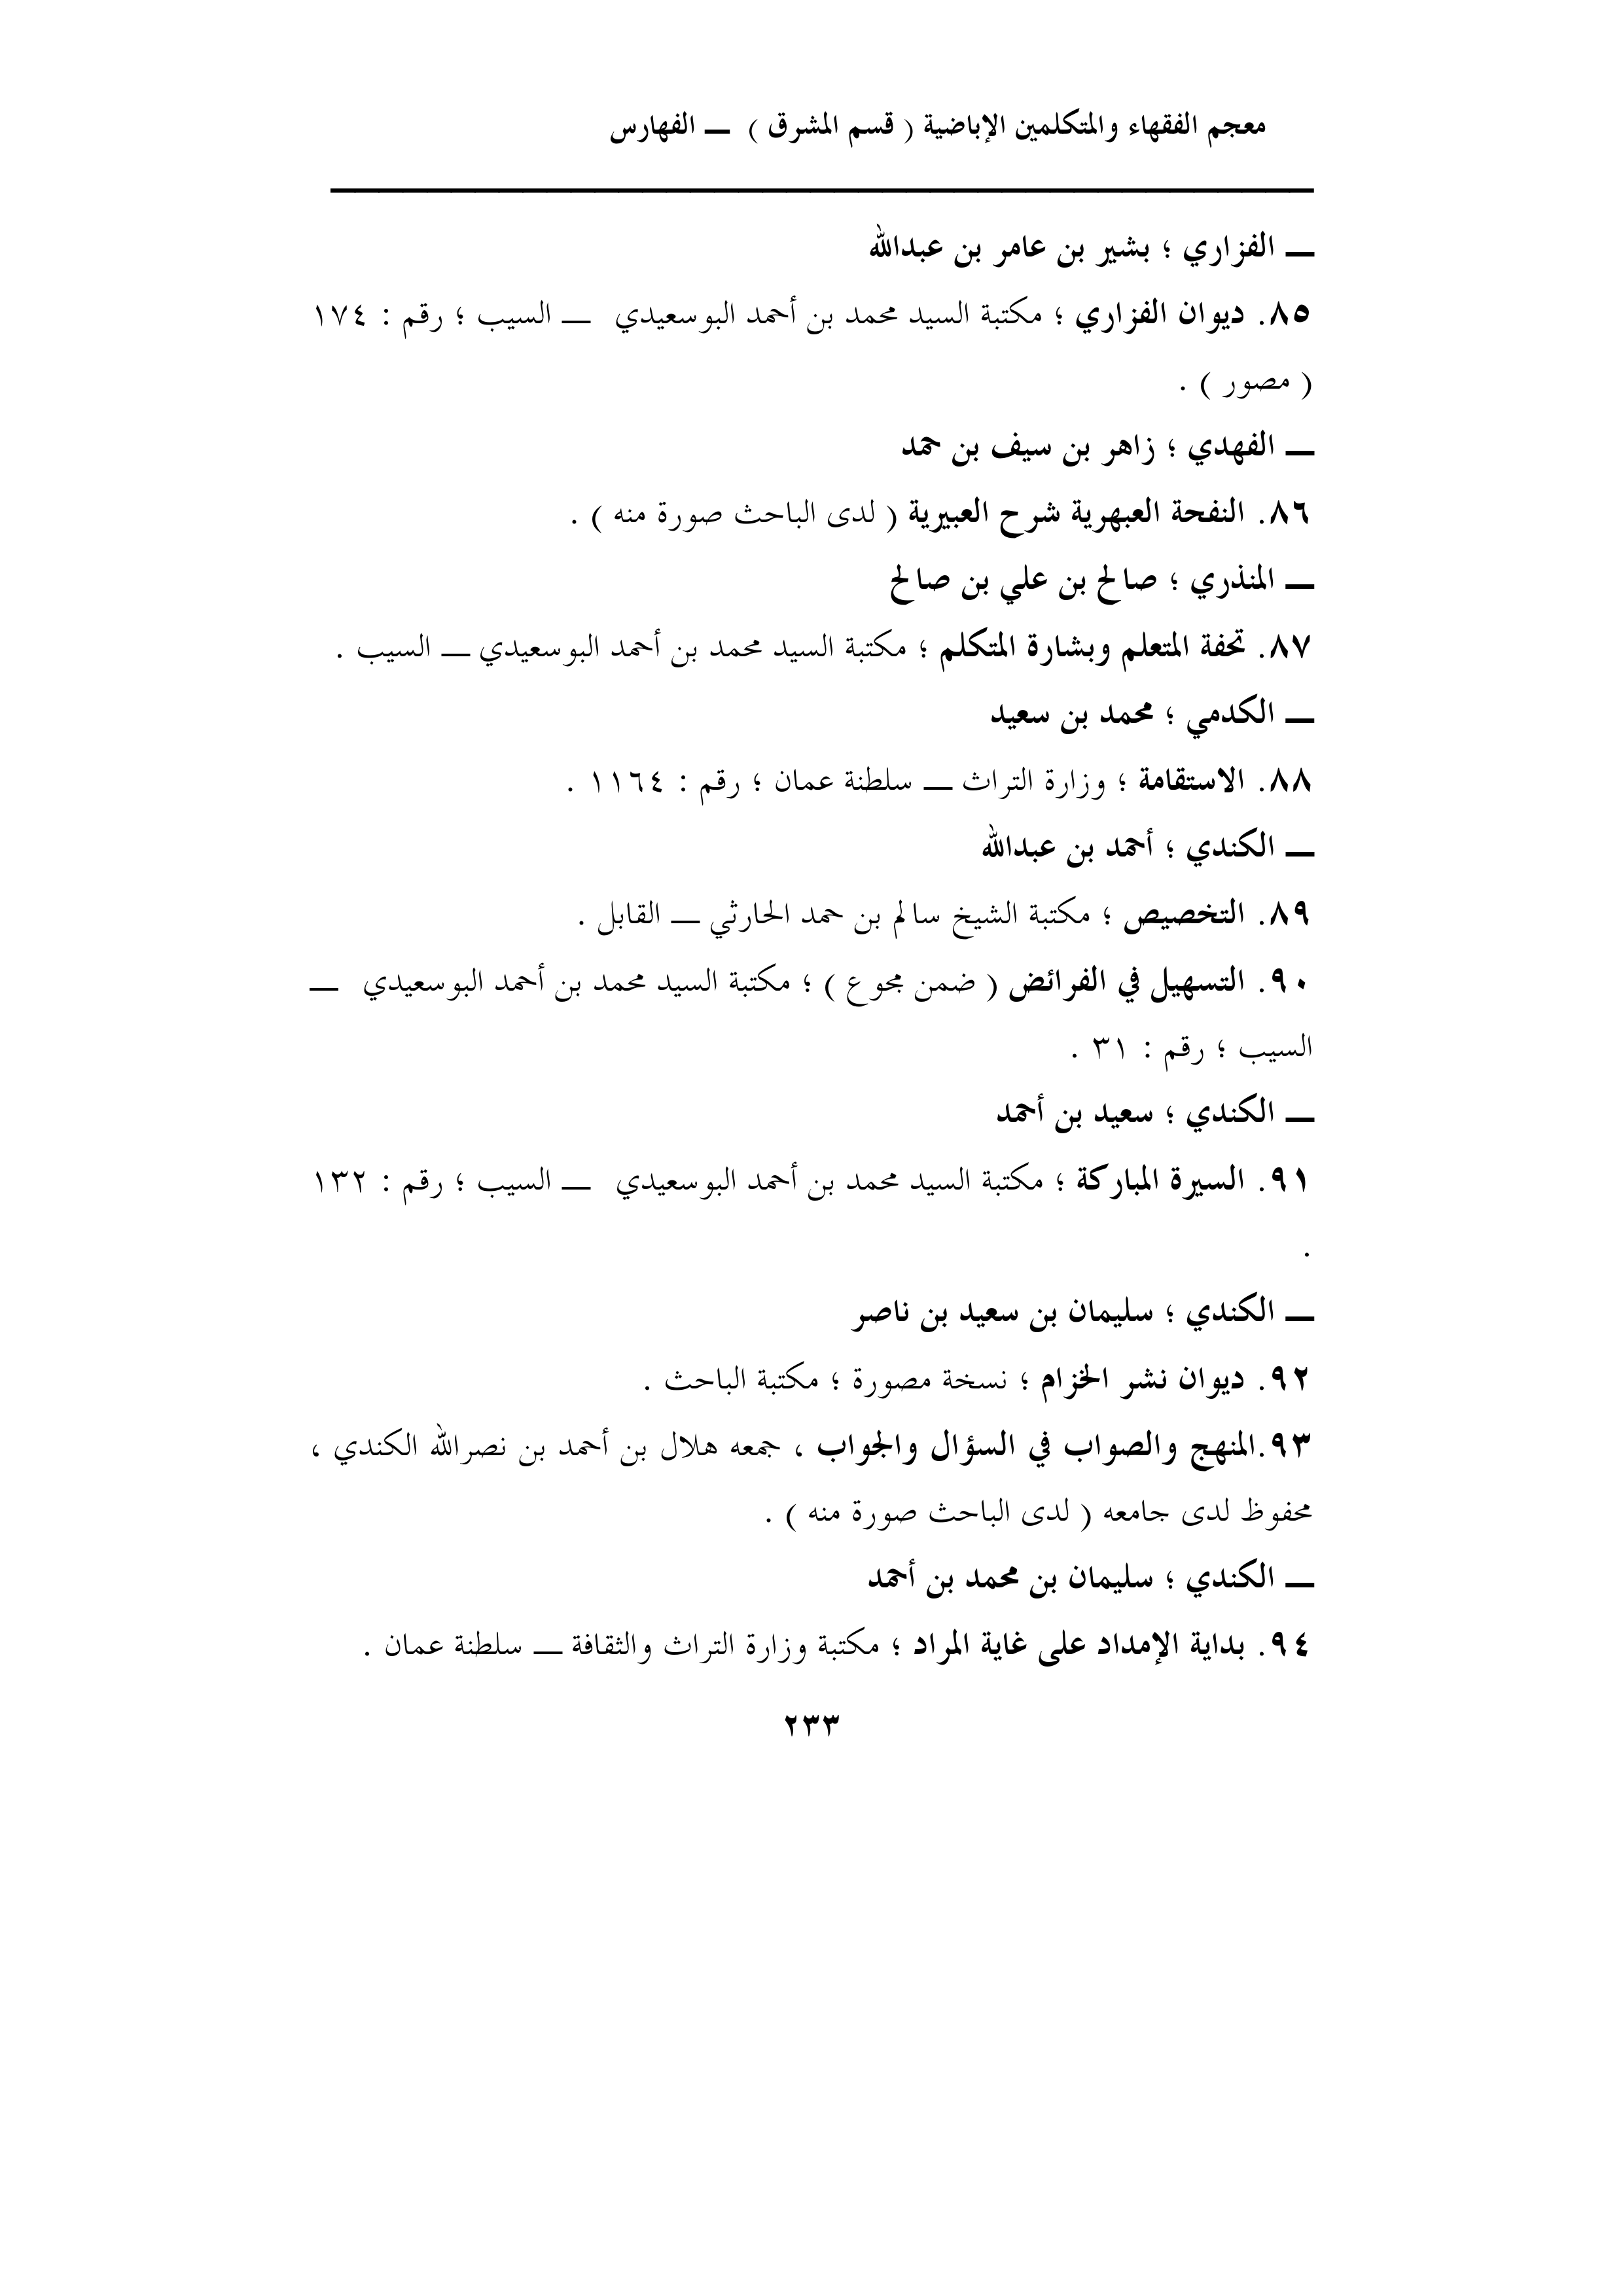 معجم الفقهاء والمتكلمين الإباضية ( قسم المشرق ) ــ الفهارس
ــ الفزاري ؛ بشير بن عامر بن عبدالله
٨٥. ديوان الفزاري ؛ مكتبة السيد محمد بن أحمد البوسعيدي ــ السيب ؛ رقم : ١٧٤
( مصور ) .
ــ الفهدي ؛ زاهر بن سيف بن حمد
٨٦. النفحة العبهرية شرح العبيرية ( لدى الباحث صورة منه ) .
ــ المنذري ؛ صالح بن علي بن صالح
٨٧. تحفة المتعلم وبشارة المتكلم ؛ مكتبة السيد محمد بن أحمد البوسعيدي ــ السيب .
ــ الكدمي ؛ محمد بن سعيد
٨٨. الاستقامة ؛ وزارة التراث ــ سلطنة عمان ؛ رقم : ١١٦٤ .
ــ الكندي ؛ أحمد بن عبدالله
٨٩. التخصيص ؛ مكتبة الشيخ سالم بن حمد الحارثي ــ القابل .
٩٠. التسهيل في الفرائض ( ضمن مجوع ) ؛ مكتبة السيد محمد بن أحمد البوسعيدي ــ
السيب ؛ رقم : ٣١ .
ــ الكندي ؛ سعيد بن أحمد
٩١. السيرة المباركة ؛ مكتبة السيد محمد بن أحمد البوسعيدي ــ السيب ؛ رقم : ١٣٢
.
ــ الكندي ؛ سليمان بن سعيد بن ناصر
٩٢. ديوان نشر الخزام ؛ نسخة مصورة ؛ مكتبة الباحث .
٩٣.المنهج والصواب في السؤال والجواب ، جمعه هلال بن أحمد بن نصرالله الكندي ،
محفوظ لدى جامعه ( لدى الباحث صورة منه ) .
ــ الكندي ؛ سليمان بن محمد بن أحمد
٩٤. بداية الإمداد على غاية المراد ؛ مكتبة وزارة التراث والثقافة ــ سلطنة عمان .
٢٣٣